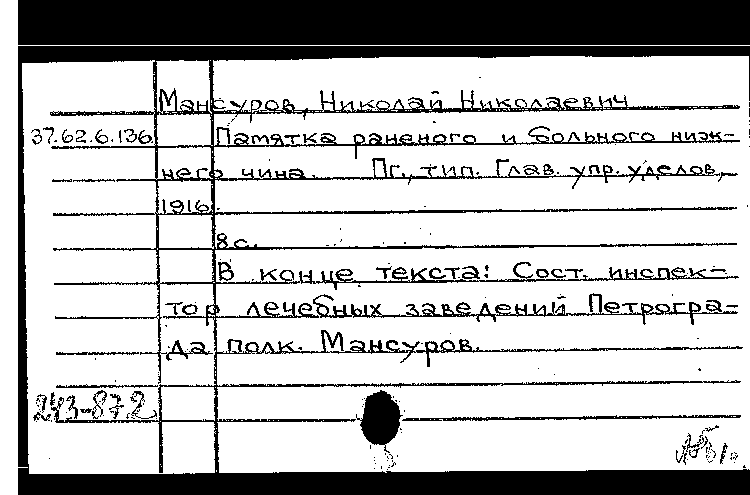 Мансуров, Николай Николаевич
37.62.6.136 Памятка раненого и больного ниж-
него чина. Пг., тип. Глав. упр. уделов,
1916.
8 с.
В конце текста: Сост. инспек-
тор лечебных заведений Петрогра-
да полк. Мансуров.
243-872